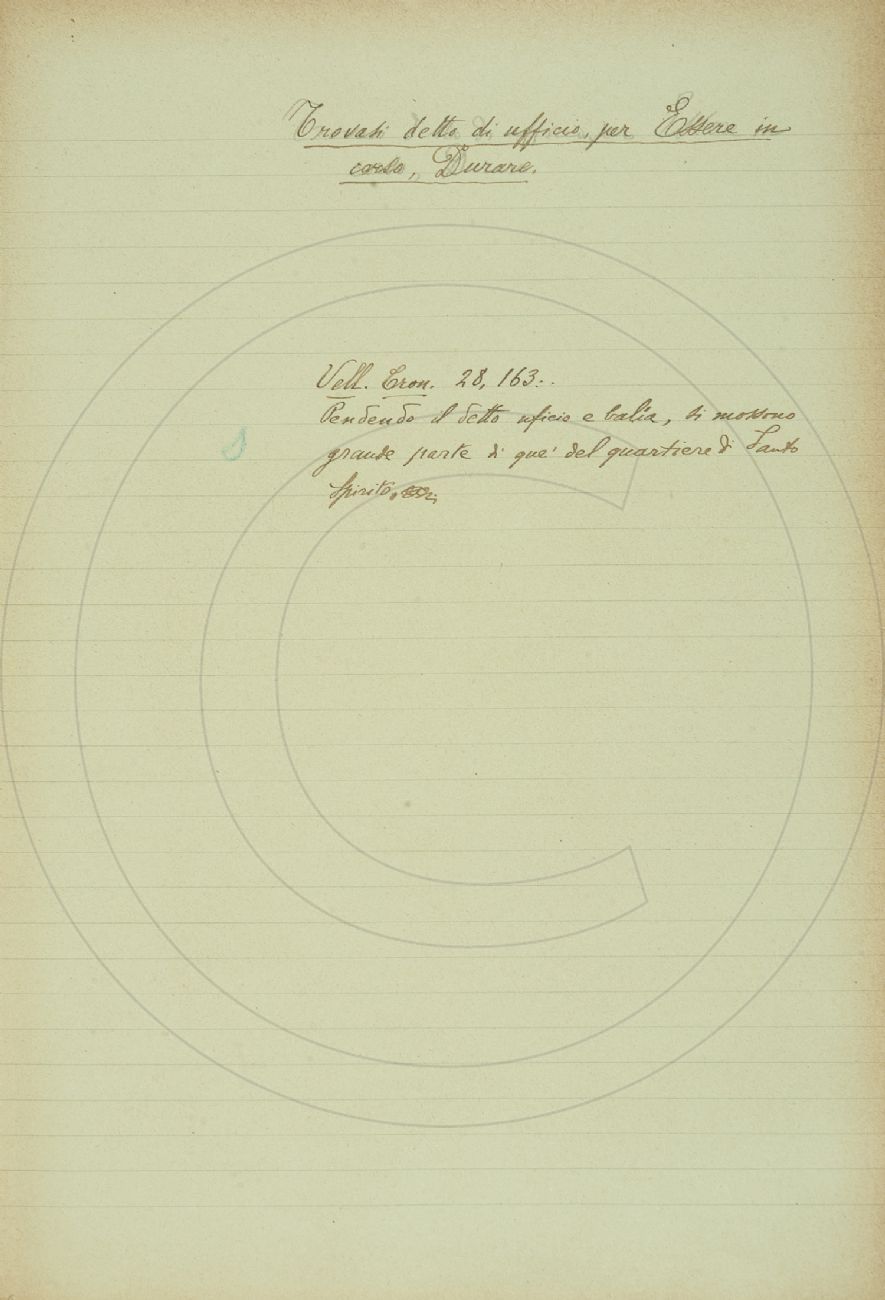 Trovasi detto di ufficio, per Essere in
corso, Durare.
Vell. Cron. 28, 163.
Pendendo il detto uficio e balìa, si mossono
grande parte di que' del quartiere di Santo
Spirito,